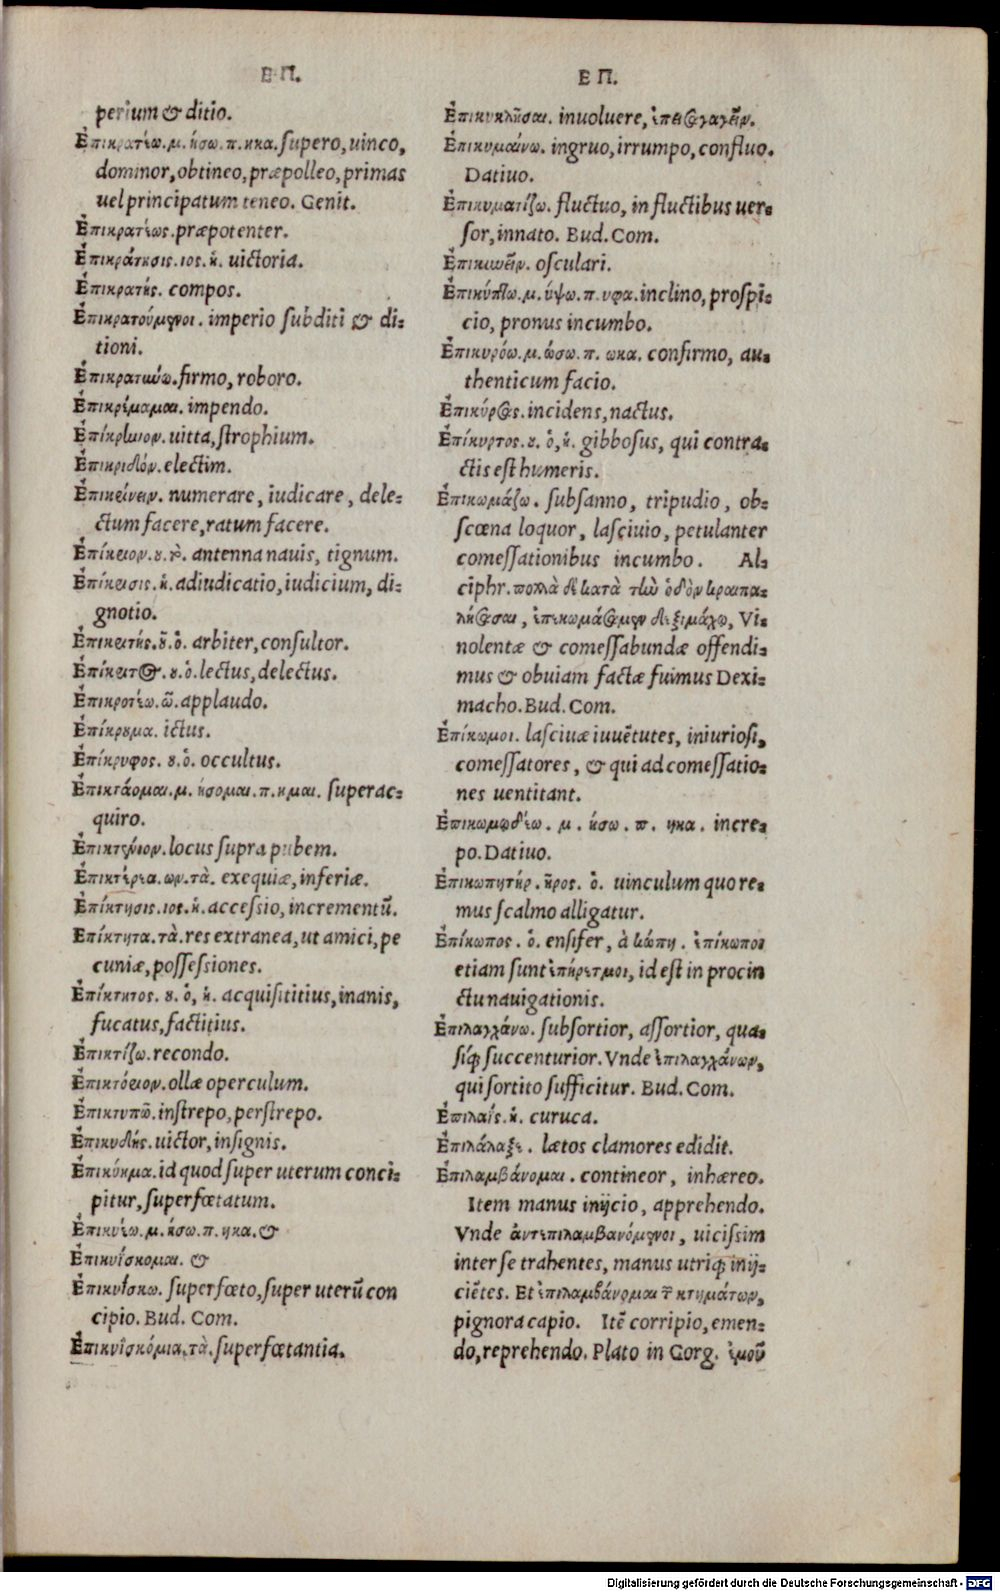 Ε Π.
perium & ditio.
Ἐπικρατέω. μ. ήσω. π. ηκα. supero, uinco,
dominor, obtineo, præpolleo, primas
uel principatum teneo. Genit.
Ἐπικρατέως. præpotenter.
Ἐπικράτησις. ιος. ἡ. uictoria.
Ἐπικρατής. compos.
Ἐπικρατούμενοι. imperio subditi & di-
tioni.
Ἐπικραταιόω. firmo, roboro.
Ἐπικρέμαμαι. impendo.
Ἐπίκρίωιον. uitta, strophium.
Ἐπικριδόν. electim.
Ἐπικρίνειν. numerare, iudicare, dele-
ctum facere, ratum facere.
Ἐπίκριον. ου. τὸ. antenna nauis, tignum.
Ἐπίκρισις. ἡ. adiudicatio, iudicium, di-
gnotio.
Ἐπικριτής. οῦ. ὁ. arbiter, consultor.
Ἐπίκριτος. ου. ὁ. lectus, delectus.
Ἐπικροτέω. ῶ. applaudo.
Ἐπίκρουμα. ictus.
Ἐπίκρυφος. ου. ὁ. occultus.
Ἐπικτάομαι. μ. ήσομαι. π. ημαι. superac-
quiro.
Ἐπικτένιον. locus supra pubem.
Ἐπικτέρια. ων. τὰ. exequiæ, inferiæ.
Ἐπίκτησις. ιος. ἡ. accessio, incrementū.
Ἐπίκτητα. τὰ. res extranea, ut amici, pe
cuniæ, possessiones.
Ἐπίκτητος. ου. ὁ, ἡ. acquisititius, inanis,
fucatus, factitius.
Ἐπικτίζω. recondo.
Ἐπικτόριον. ollæ operculum.
Ἐπικτυπῶ. instrepo, perstrepo.
Ἐπικυδής. uictor, insignis.
Ἐπικύημα. id quod super uterum conci-
pitur, superfœtatum.
Ἐπικυέω. μ. ήσω. π. ηκα. &
Ἐπικυΐσκομαι. &
Ἐπικυΐσκω. superfœto, super uterū con
cipio. Bud. Com.
Ἐπικυΐσκόμια. τὰ. superfœtantia.
Ε Π.
Ἐπικυκλῆσαι. inuoluere, ἐπεισαγαγεῖν.
Ἐπικυμαίνω. ingruo, irrumpo, confluo.
Datiuo.
Ἐπικυματίζω. fluctuo, in fluctibus uer-
sor, innato. Bud. Com.
Ἐπικυνεῖν. osculari.
Ἐπικύπτω. μ. ύψω. π. υφα. inclino, prospi-
cio, pronus incumbo.
Ἐπικυρόω. μ. ώσω. π. ωκα. confirmo, au-
thenticum facio.
Ἐπικύρσας. incidens, nactus.
Ἐπίκυρτος. ου. ὁ, ἡ. gibbosus, qui contra-
ctis est humeris.
Ἐπικωμάζω. subsanno, tripudio, ob-
scœna loquor, lasciuio, petulanter
comessationibus incumbo. Al-
ciphr. πολλὰ δὲ κατὰ τὴν ὁδὸν κραιπα-
λήσασαι, ἐπικωμάσαμεν δεξιμάχῳ, Vi-
nolentæ & comessabundæ offendi-
mus & obuiam factæ fuimus Dexi-
macho. Bud. Com.
Ἐπίκωμοι. lasciuæ iuuētutes, iniuriosi,
comessatores, & qui ad comessatio-
nes uentitant.
Ἐπικωμῳδέω. μ. ήσω. π. ηκα. incre-
po. Datiuo.
Ἐπικωπητήρ. ῆρος. ὁ. uinculum quo re-
mus scalmo alligatur.
Ἐπίκωπος. ὁ. ensifer, ἀ κώπη. ἐπίκωποι
etiam sunt ἐπήρετμοι, id est in procin
ctu nauigationis.
Ἐπιλαγχάνω. subsortior, assortior, qua-
siq́; succenturior. Vnde ἐπιλαγχάνων,
qui sortito sufficitur. Bud. Com.
Ἐπιλαΐς. ἡ. curuca.
Ἐπιλάλαξε. lætos clamores edidit.
Ἐπιλαμβάνομαι. contineor, inhæreo.
Item manus inijcio, apprehendo.
Vnde ἀντεπιλαμβανόμενοι, uicissim
inter se trahentes, manus utriq; inij-
ciētes. Et ἐπιλαμβάνομαι τ̃ κτημάτων,
pignora capio. Itē corripio, emen-
do, reprehendo. Plato in Gorg. ἐμοῦ